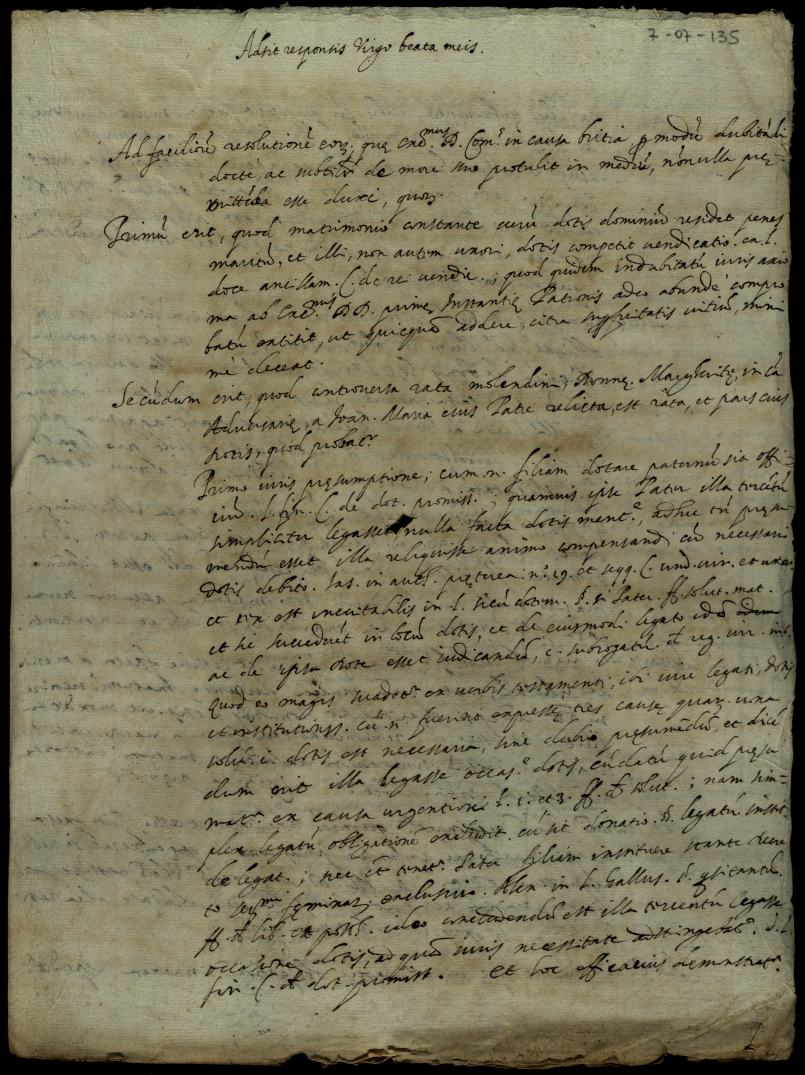 7-07-135
Adsit responsis Virgo beata meis.
Ad faciliorē resolutionē eorz. quę Exc.mus D. Com.s in causa britia p modū dubitādi
docte, ac subtilr de more suo protulit in mediū, nōnulla prę-
mittēda esse duxi, quorz.
Primū erit, quod matrimonio constante verū dotis dominiū residet penes
maritū, et illi, non autem uxori, dotis competit vendicatio. ea. l.
doce ancillam. C. de rei vendic.; quod quidem indubitatū iuris axio
ma ab Exc.mis DD. primę Instantię Patronis adeo abunde compro
batū extitit, ut quicquā addere, citra supfluitatis vitiū, mini
mè deceat.
Secūdum erit, quod controversa rata molendini, Donnę. Margheritę, in cā
Adversarię, a Ioan. Maria eius Patre relicta, est rata, et pars eius
dotis, quod probat.r
Primo iuris pręsumptione; cum .n. filiam dotare paternū sit offi-
ciū. l. fin. C. de dot. promiss.; quamvis ipse Pater illa tercētū
simpliciter legasset nulla facta dotis ment.e, adhuc tn̄ pręsu
mendū esset illa reliquisse animo compensandi cū necessario
dotis debito. Ias. in auth. pręterea. n.o 19. et seqq. C. und. vir. et uxor
et tex est inevitabilis in l. sicū dotem. §. si Pater. ff. solut. mat.
et hi succederēt in locū dotis, et de eiusmodi legato idē
ac de ipsa dote esset iudicandū, c. subrogatū. de reg. iur. in 6.
Quod eo magis suadet.r ex verbis testamenti, ibi iure legati, dotis
et institutionis. cū .n. fuerint expressę tres causę quarz. una
solū. i. dotis est necessaria, sine dubio pręsumēdū, et dicē
dum erit illa legasse occas.e dotis, cū datū quid pręsu
mat.r ex causa urgentiori l. 1. et 3. ff. de solut.; nam sim-
plex legatū obligationē excludit. cū sit donatio. §. legatū. instit.
de legat.; nec ēt tenet.r Pater filiam instituere stante decre
to fęminarz. exclusivo. Alex. in l. Gallus. §.
ff. de lib. et posth. ideo concludendū est illa tercentū legasse
occasione dotis, ad quā iuris necessitate adstringebat.r d. l.
fin. C. de dot. promiss. Et hoc efficacius demonstrat.r
1